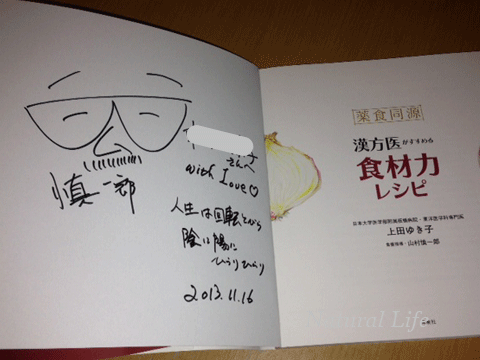 慎一郎
さんへ
with Love♡
人生は回転とびら
陰に陽に
ひらりひらり
2013.11.16
薬食同源
漢方医がすすめる
食材力
レシピ
日本大学医学部附属板橋病院・東洋医学科専門医
上田ゆき子
栄養指導・山村慎一郎
Natural Life